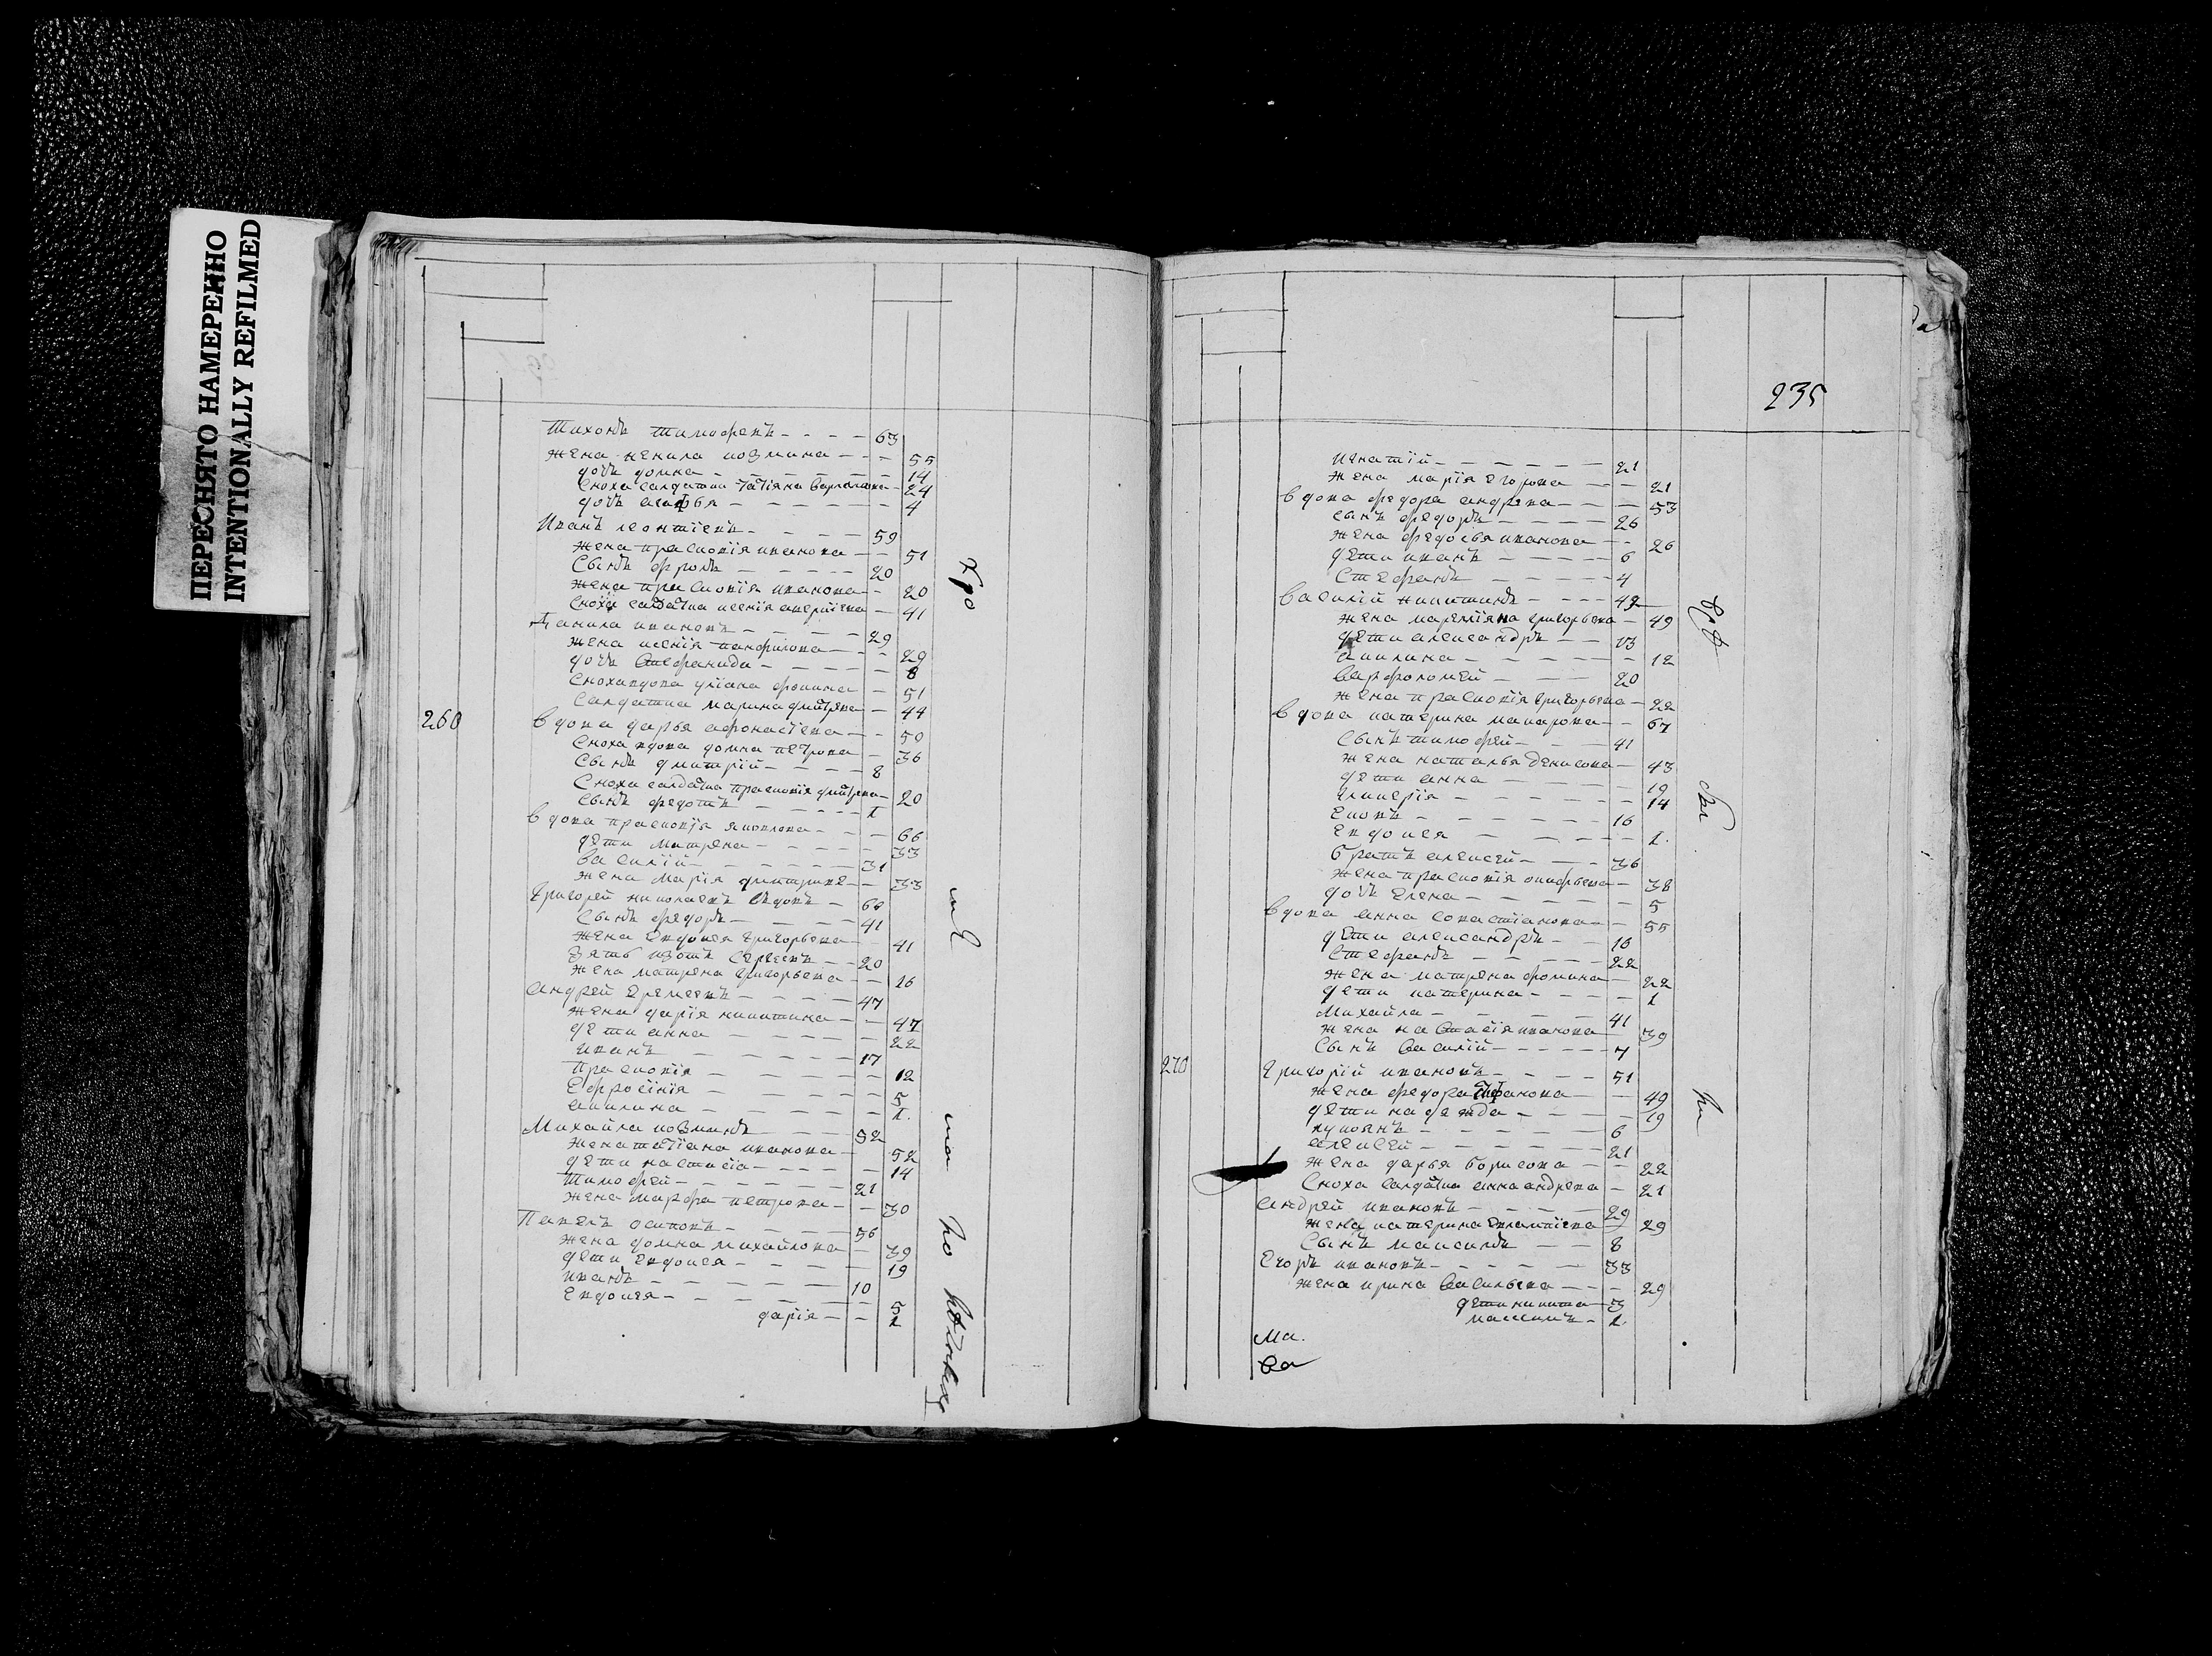 ПЕРЕСНЯТО НАМЕРЕННО
INTENTIONALLY REFILMED
Тихонъ тимофеевъ - - - - 63
жена ненила козмина - - - 55
дочь домна - - - - - - 14
Сноха салдатка татіяна варламова - 24
дочь агафья - - - - - - 4
Иванъ леонтіевъ - - - - 59
жена прасковія иванова - - 51
Сынъ фролъ - - - - - 20
жена прасковія иванова - - 20
Сноха салдатка ксенія аверкіева - 41
Данила ивановъ - - - - 29
жена ксенія панфилова - - - 29
дочь Стефанида - - - - - 8
Сноха вдова уліана фокина - 51
Салдатка марина дмитрева - 44
260 вдова дарья афонасіева - - 50
Сноха вдова домна петрова - 36
Сынъ дмитрій - - - - 8
Сноха салдатка прасковія дмитрева - 20
Сынъ федотъ - - - - 1
вдова прасковія яковлева - - - 66
дети матрена - - - - - 33
василій - - - - - 31
жена марія дмитріева - - 33
Григорей николаевъ вдовъ - 60
Сынъ федоръ - - - - 41
жена Евдокея григорьева - - 41
зять изотъ Сергеевъ - - 20
жена матрена григорьева - - 16
Андрей Еремеевъ - - - - 47
жена дарія никитина - - 47
дети анна - - - - - 22
Иванъ - - - - - 17
Прасковія - - - - - 12
Ефросінія - - - - - 5
акилина - - - - - 1.
Михайла козминъ - - - 52
жена татіана иванова - 52
дети настасіа - - - - - 14
Тимофей - - - - - 21
жена марфа петрова - - 30
Павелъ осиповъ - - - - 56
жена домна михайлова - 39
дети Евдокея - - - - - 19
иванъ - - - - - 10
Евдокея - - - - - - 5
дарія - - 1
235
Игнатій - - - - - - 21
жена марія Егорова - - - 21
вдова федора андрева - - - 53
сынъ федоръ - - - - 26
жена федосья иванова - - 26
дети иванъ - - - - - 6
Стефанъ - - - - 4
василій никитинъ - - - - 49
жена мареміяна григорьева - 49
дети александръ - - 13
акилина - - - - - 12
варфоломей - - - 20
жена прасковія григорьева - 22
вдова катерина макарова - - 67
Сынъ тимофей - - - 41
жена наталья денисова - 43
дети анна - - - - 19
гликерія - - - - - 14
Еновъ - - - - - 16
Евдокея - - - - - 1.
братъ алексей - - - 36
жена прасковія - 38
дочь Елена - - - - - 5
вдова анна - - 55
дети александръ - - 16
Стефанъ - - - - - 22
жена матрена фомина - 22
дети катерина - - - - 1
Михайла - - - - - 41
жена настасія иванова - 39
Сынъ василій - - - - 7
270 Григорій ивановъ - - - - 51
жена федора - - 49
дети надежда - - - - 19
- - - - 6
алексей - - - - - 21
жена дарья борисова - - 22
Сноха салдатка анна андрева - 21
Андрей ивановъ - - - - 29
жена катерина Евлампіева - 29
Сынъ максимъ - - 8
Егоръ ивановъ - - - - 33
жена ирина васильева - - - 29
дети никита - 3
максимъ - 1.
Ма.
Ва